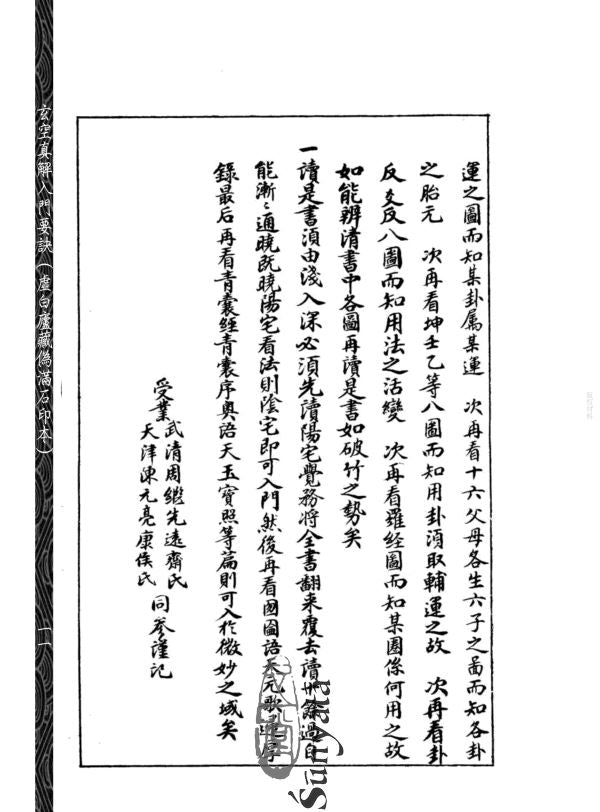 運之圖而知某卦屬某運　次再看十六父母各生六子之圖而知各卦
之胎元　次再看坤壬乙等八圖而知用卦須取輔運之故　次再看卦
反爻反八圖而知用法之活變　次再看羅经圖而知某圈係何用之故
如能辨清書中各圖再讀是書如破竹之勢矣
一讀是書須由淺入深必須先讀陽宅覺務將全書翻来覆去讀卅餘過自
能漸〻通曉既曉陽宅看法則陰宅即可入門然後再看國圖語天元歌
錄最后再看青囊经青囊序奥語天玉寳照等篇則可入於微妙之域矣
受業武清周繼先遠齋氏
天津陳元亮康侯氏
同叅謹记
玄空真解入門要訣（虛白廬藏偽滿石印本）
一一
Śūnyatā
版权材料